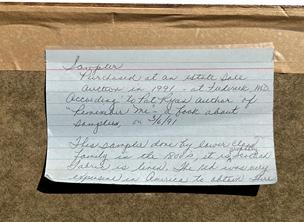 Sampler
Purchased at an estate Sale
Auction in 1991 - at Frederick, MD.
According to Pat Ryan author of
"Remember Me" a book about
Samplers, on 5/6/91
This sampler done by lower class
family in the 1800's, it is
fabric is linen. The red was very
expensive in America to obtain